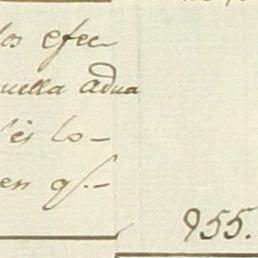 los efec-
quella adua
lo-
en qs.-
955.